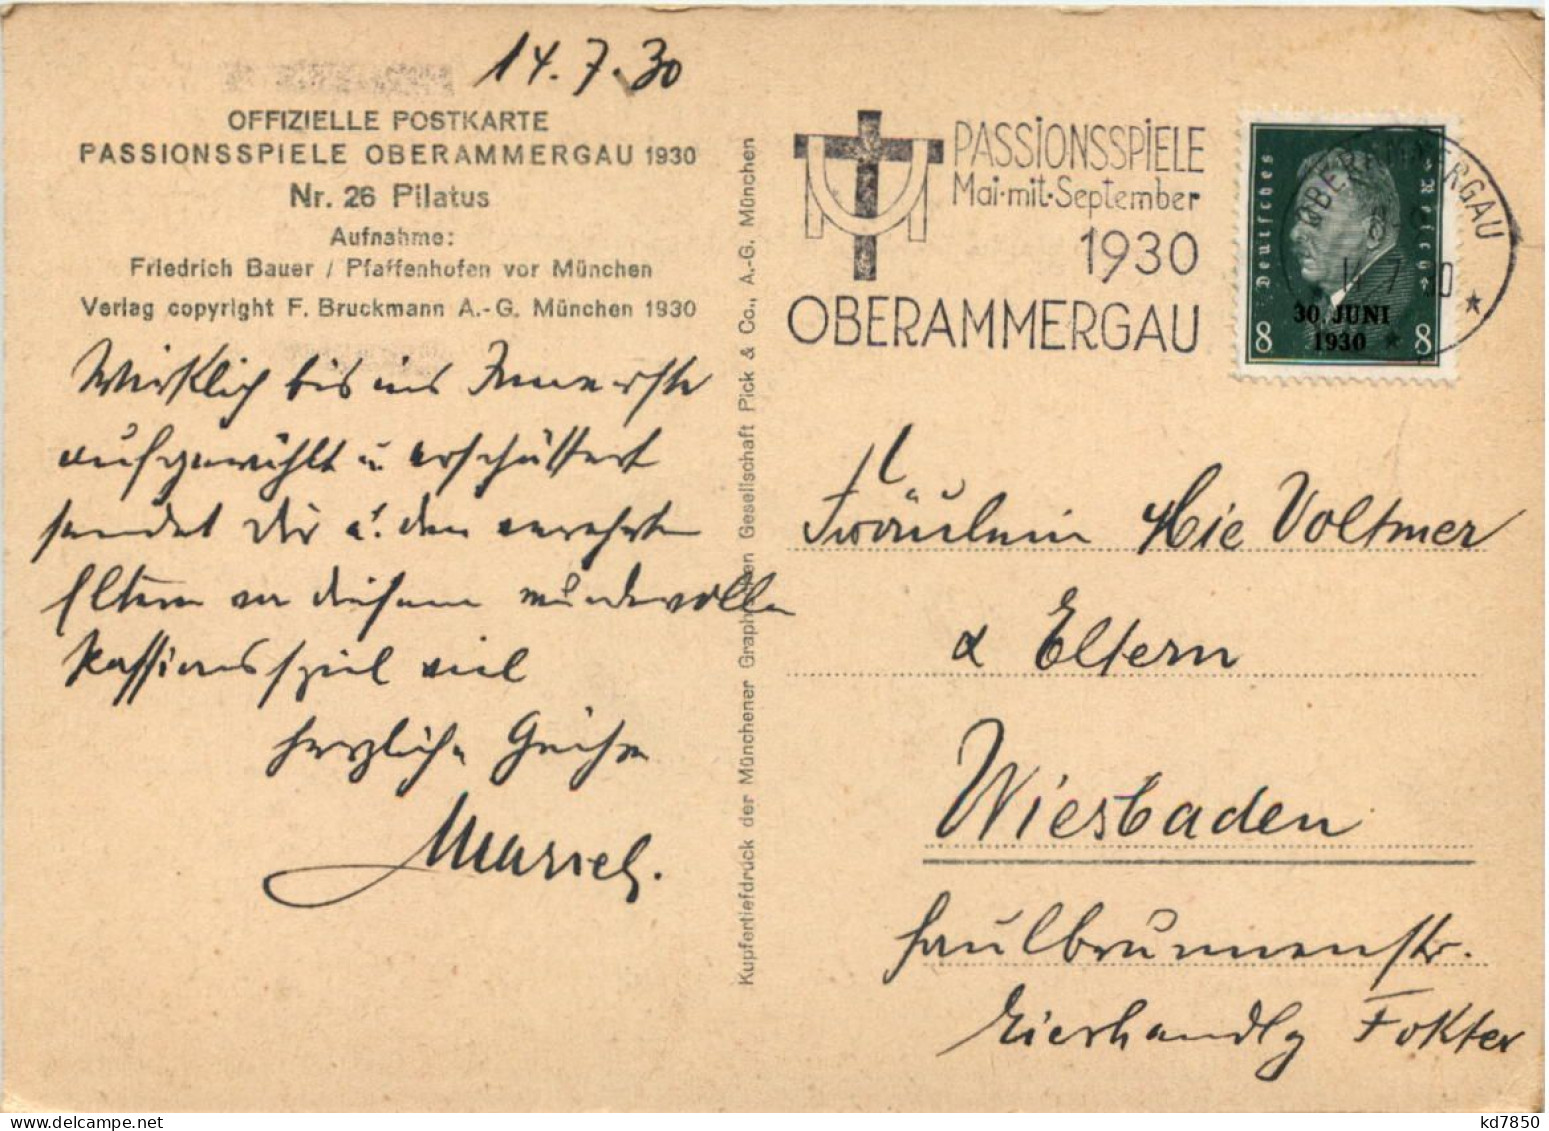 14.7.30
OFFIZIELLE POSTKARTE
PASSIONSSPIELE OBERAMMERGAU 1930
Nr. 26 Pilatus
Aufnahme:
Friedrich Bauer / Pfaffenhofen vor München
Verlag copyright F. Bruckmann A.-G. München 1930
Wirklich bis ins Innerste
aufgewühlt u erschüttert
sendet Dir u. den verehrten
Eltern von diesem wundervollen
Passionsspiel viel
herzliche Grüße
Kupfertiefdruck der Münchener Graphischen Gesellschaft Pick & Co., A.-G. München
PASSIONSSPIELE
Mai-mit-September
1930
OBERAMMERGAU
Deutsches Reich
30. JUNI
1930
8 8
OBERAMMERGAU
7 30
Fräulein Mie Voltmer
& Eltern
Wiesbaden
Faulbrunnenstr.
Eierhandlg Fokter
kd7850